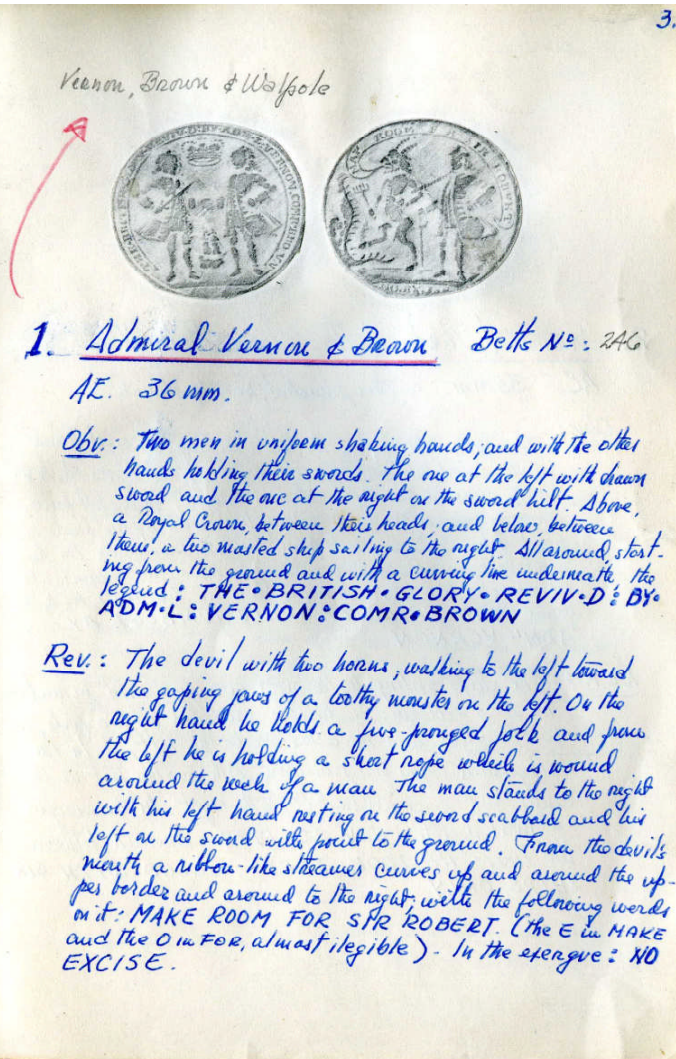 3.
Vernon, Brown & Walpole
1. Admiral Vernon & Brown Betts Nº: 246
AE. 36 mm.
Obv.: Two men in uniform shaking hands, and with the other
hands holding their swords. The one at the left with drawn
sword and the one at the right on the sword hilt. Above,
a Royal Crown, between their heads, and below, between
them, a two masted ship sailing to the right. All around, start-
ing from the ground and with a curving line underneath, the
legend: THE•BRITISH•GLORY•REVIV•D: BY•
ADM•L: VERNON: COMR•BROWN
Rev.: The devil with two horns, walking to the left toward
the gaping jaws of a toothy monster on the left. On the
right hand he holds a five-pronged fork and from
the left he is holding a short rope which is wound
around the neck of a man The man stands to the right
with his left hand resting on the sword scabbard and his
left on the sword with point to the ground. From the devil's
mouth a ribbon-like streamer curves up and around the up-
per border and around to the right, with the following words
on it: MAKE ROOM FOR SIR ROBERT. (the E in MAKE
and the O in FOR, almost ilegible) - In the exergue: NO
EXCISE.